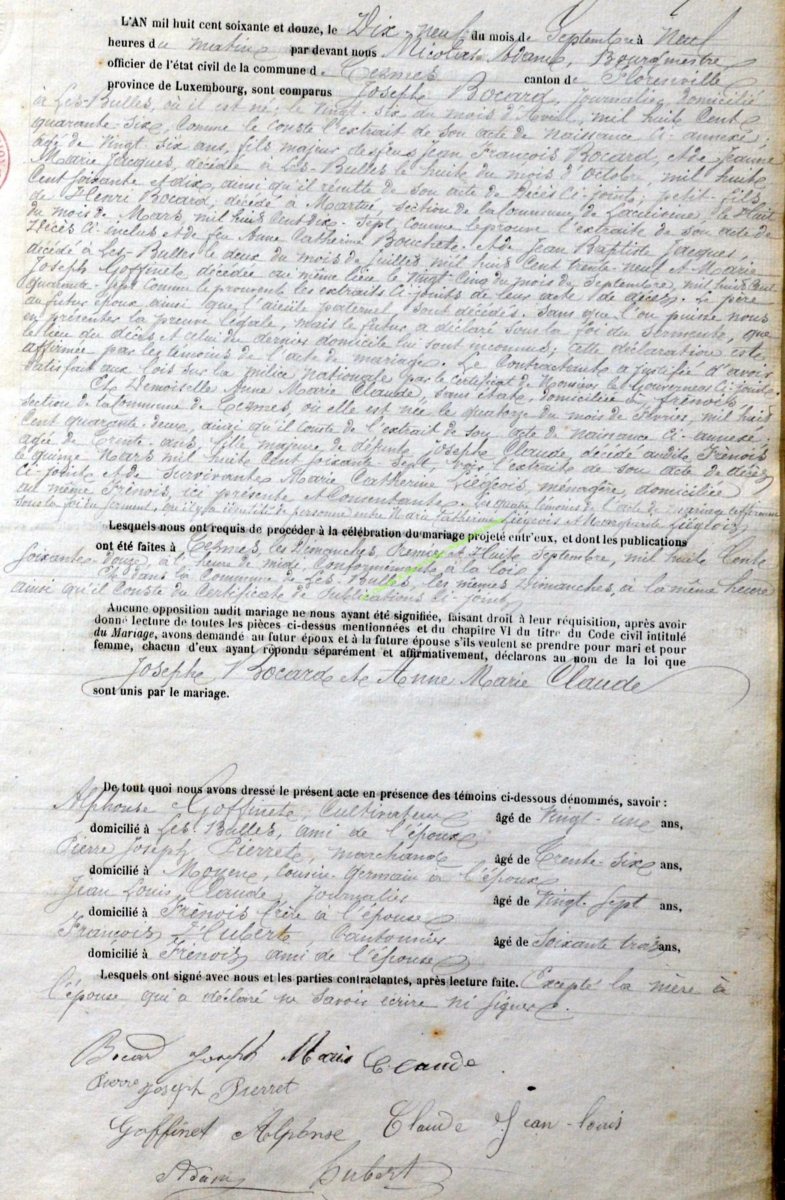 L'AN mil huit cent soixante et douze, le Dix neuf du mois de Septembre à Neuf
heures du matin par devant nous Nicolas Adam, Bourgmestre
officier de l'état civil de la commune de Termes canton de Florenville
province de Luxembourg, sont comparus Joseph Bocard, Journalier, Domicilié
à Les-Bulles, où il est né, le vingt-six du mois d'Avril, mil huit Cent
quarante-six, comme le Conste l'extrait de son acte de naissance Ci-annexé,
âgé de vingt six ans, fils majeur des feus Jean François Bocard, et de Jeanne
Marie Jacques, décédée à Les-Bulles le huit du mois d'Octobre, mil huit
Cent soixante et dix, ainsi qu'il résulte de son acte de Décès Ci-joint; petit-fils
de Henri Bocard, décédé à Martué, section de la Commune de Lacuisine, le Huit
du mois de Mars, mil huit Cent dix-Sept Comme le prouve l'extrait de son acte de
Décès Ci-inclus et de feu Anne Catherine Bouchet. et de Jean Baptiste Jacques,
décédé à Les-Bulles le deux du mois de juillet mil huit Cent trente neuf et Marie
Joseph Goffinet décédée au même lieu le Vingt-Cinq du mois de Septembre, mil huit Cent
Quarante-Sept Comme le prouvent les extraits Ci-joints de leurs acte de décès. Le père
au futur époux ainsi que l'aïeule paternel, sont décédés. Sans que l'on puisse nous
en présenter la preuve légale, mais le futur a déclaré sous la foi du serment, que
le lieu du décès et celui du dernier domicile lui sont inconnus; cette déclaration est
affirmée par les témoins de l'acte de mariage. Le Contractant a justifié d'avoir
satisfait aux lois sur la milice Nationale par le Certificat de Monsieur le Gouverneur Ci-joint.
Et Demoiselle Anne Marie Claude, sans état, domiciliée à frénois,
section de la Commune de Termes, où elle est née le quatorze du mois de février, mil huit
Cent quarante-deux, ainsi qu'il Conste de l'extrait de son acte de naissance Ci-annexé.
agée de Trente ans, fille majeure de défunt Joseph Claude, décédé audit Frénois
le quinze Mars mil huit Cent soixante Sept, vois l'extrait de son acte de décès
Ci-joint et de survivante Marie Catherine Liégeois, ménagère, domiciliée
au même Frénois, ici présente et Consentante. Les quatre témoins de l'acte de mariage affirment
sous la foi du serment, qu'il y a identité de personne entre Marie Catherine Liégeois et Marguerite Liégeois
Lesquels nous ont requis de procéder à la célébration du mariage projeté entr'eux, et dont les publications
ont été faites à Termes, les Dimanches Premier et Huit Septembre, mil huit Cent
Soixante-douze, à l'heure de midi Conformément à la loi.
Et dans la Commune de Les-Bulles, les mêmes Dimanches, à la même heure
ainsi qu'il Conste du Certificat de Publications Ci-joint
Aucune opposition audit mariage ne nous ayant été signifiée, faisant droit à leur réquisition, après avoir
donné lecture de toutes les pièces ci-dessus mentionnées et du chapitre VI du titre du Code civil intitulé
du Mariage, avons demandé au futur époux et à la future épouse s'ils veulent se prendre pour mari et pour
femme, chacun d'eux ayant répondu séparément et affirmativement, déclarons au nom de la loi que
Joseph Bocard et Anne Marie Claude
sont unis par le mariage.
De tout quoi nous avons dressé le présent acte en présence des témoins ci-dessous dénommés, savoir :
Alphonse Goffinet, Cultivateur âgé de Vingt-un ans,
domicilié à Les Bulles, ami de l'époux
Pierre Joseph Pierret, marchand âgé de Trente-Six ans,
domicilié à Moyen, Cousin Germain à l'époux
Jean Louis Claude, Journalier âgé de Vingt Sept ans,
domicilié à Frénois frère à l'épouse
François Hubert, Cantonnier âgé de Soixante trois ans,
domicilié à Frénois ami de l'épouse
Lesquels ont signé avec nous et les parties contractantes, après lecture faite. Excepté la mère à
l'épouse qui a déclaré ne savoir écrire ni signer.
Bocard Joseph Marie Claude.
Pierre Joseph Pierret
Goffinet Alphonse Claude Jean-louis
Adam Hubert